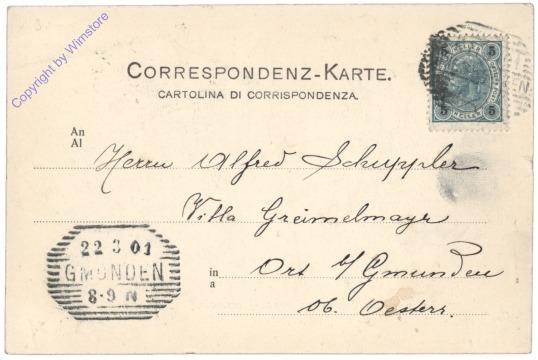 Copyright by Wimstore
CORRESPONDENZ-KARTE.
CARTOLINA DI CORRISPONDENZA.
An
Al
Herrn Alfred Schuppler
Villa Greimelmayr
in
a
Ort b/ Gmunden
Ob. Oesterr.
22 3 01
GMUNDEN
8-9 N
5 5
5 HELLER 5